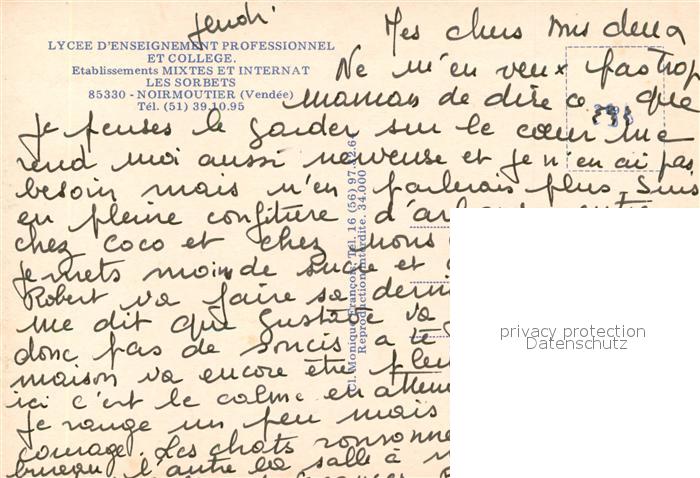 jeudi
Mes chers
LYCEE D'ENSEIGNEMENT PROFESSIONNEL
ET COLLEGE.
Etablissements MIXTES ET INTERNAT
LES SORBETS
85330 - NOIRMOUTIER (Vendée)
Tél. (51) 39.10.95
Ne m'en veux pas trop
maman de dire ce que
je penses le garder sur le cœur me
rend moi aussi nerveuse et je n'en ai pas
besoin mais n'en parlerais plus. Suis
en pleine confiture
chez Coco et chez nous
je mets moins de sucre et
Robert va faire sa
me dit que Gustave va
donc pas de soucis a te
maison va encore être
ici c'est le calme en
je range un peu mais
courage. Les chats
bureau l'autre la salle à
Cl. Monique François. Tél. 16 (56) 97.
Reproduction interdite. 34.000
privacy protection
Datenschutz